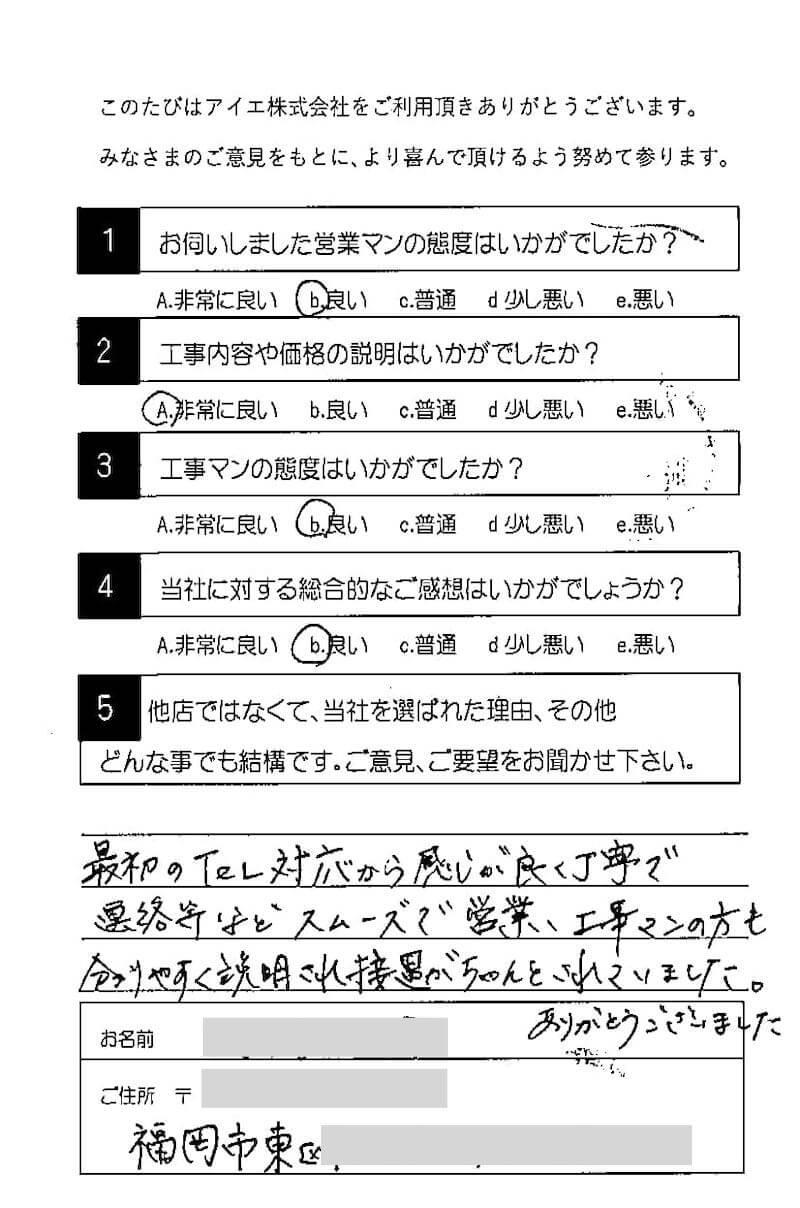 このたびはアイエ株式会社をご利用頂きありがとうございます。
みなさまのご意見をもとに、より喜んで頂けるよう努めて参ります。
1 お伺いしました営業マンの態度はいかがでしたか？
A.非常に良い b.良い c.普通 d 少し悪い e.悪い
2 工事内容や価格の説明はいかがでしたか？
A.非常に良い b.良い c.普通 d 少し悪い e.悪い
3 工事マンの態度はいかがでしたか？
A.非常に良い b.良い c.普通 d 少し悪い e.悪い
4 当社に対する総合的なご感想はいかがでしょうか？
A.非常に良い b.良い c.普通 d 少し悪い e.悪い
5 他店ではなくて、当社を選ばれた理由、その他
どんな事でも結構です。ご意見、ご要望をお聞かせ下さい。
最初のTeL対応から感じが良く丁寧で
連絡等などスムーズで営業、工事マンの方も
分づりやすく説明され接遇がちゃんとされていました。
ありがとうございました
お名前
ご住所 〒
福岡市東区